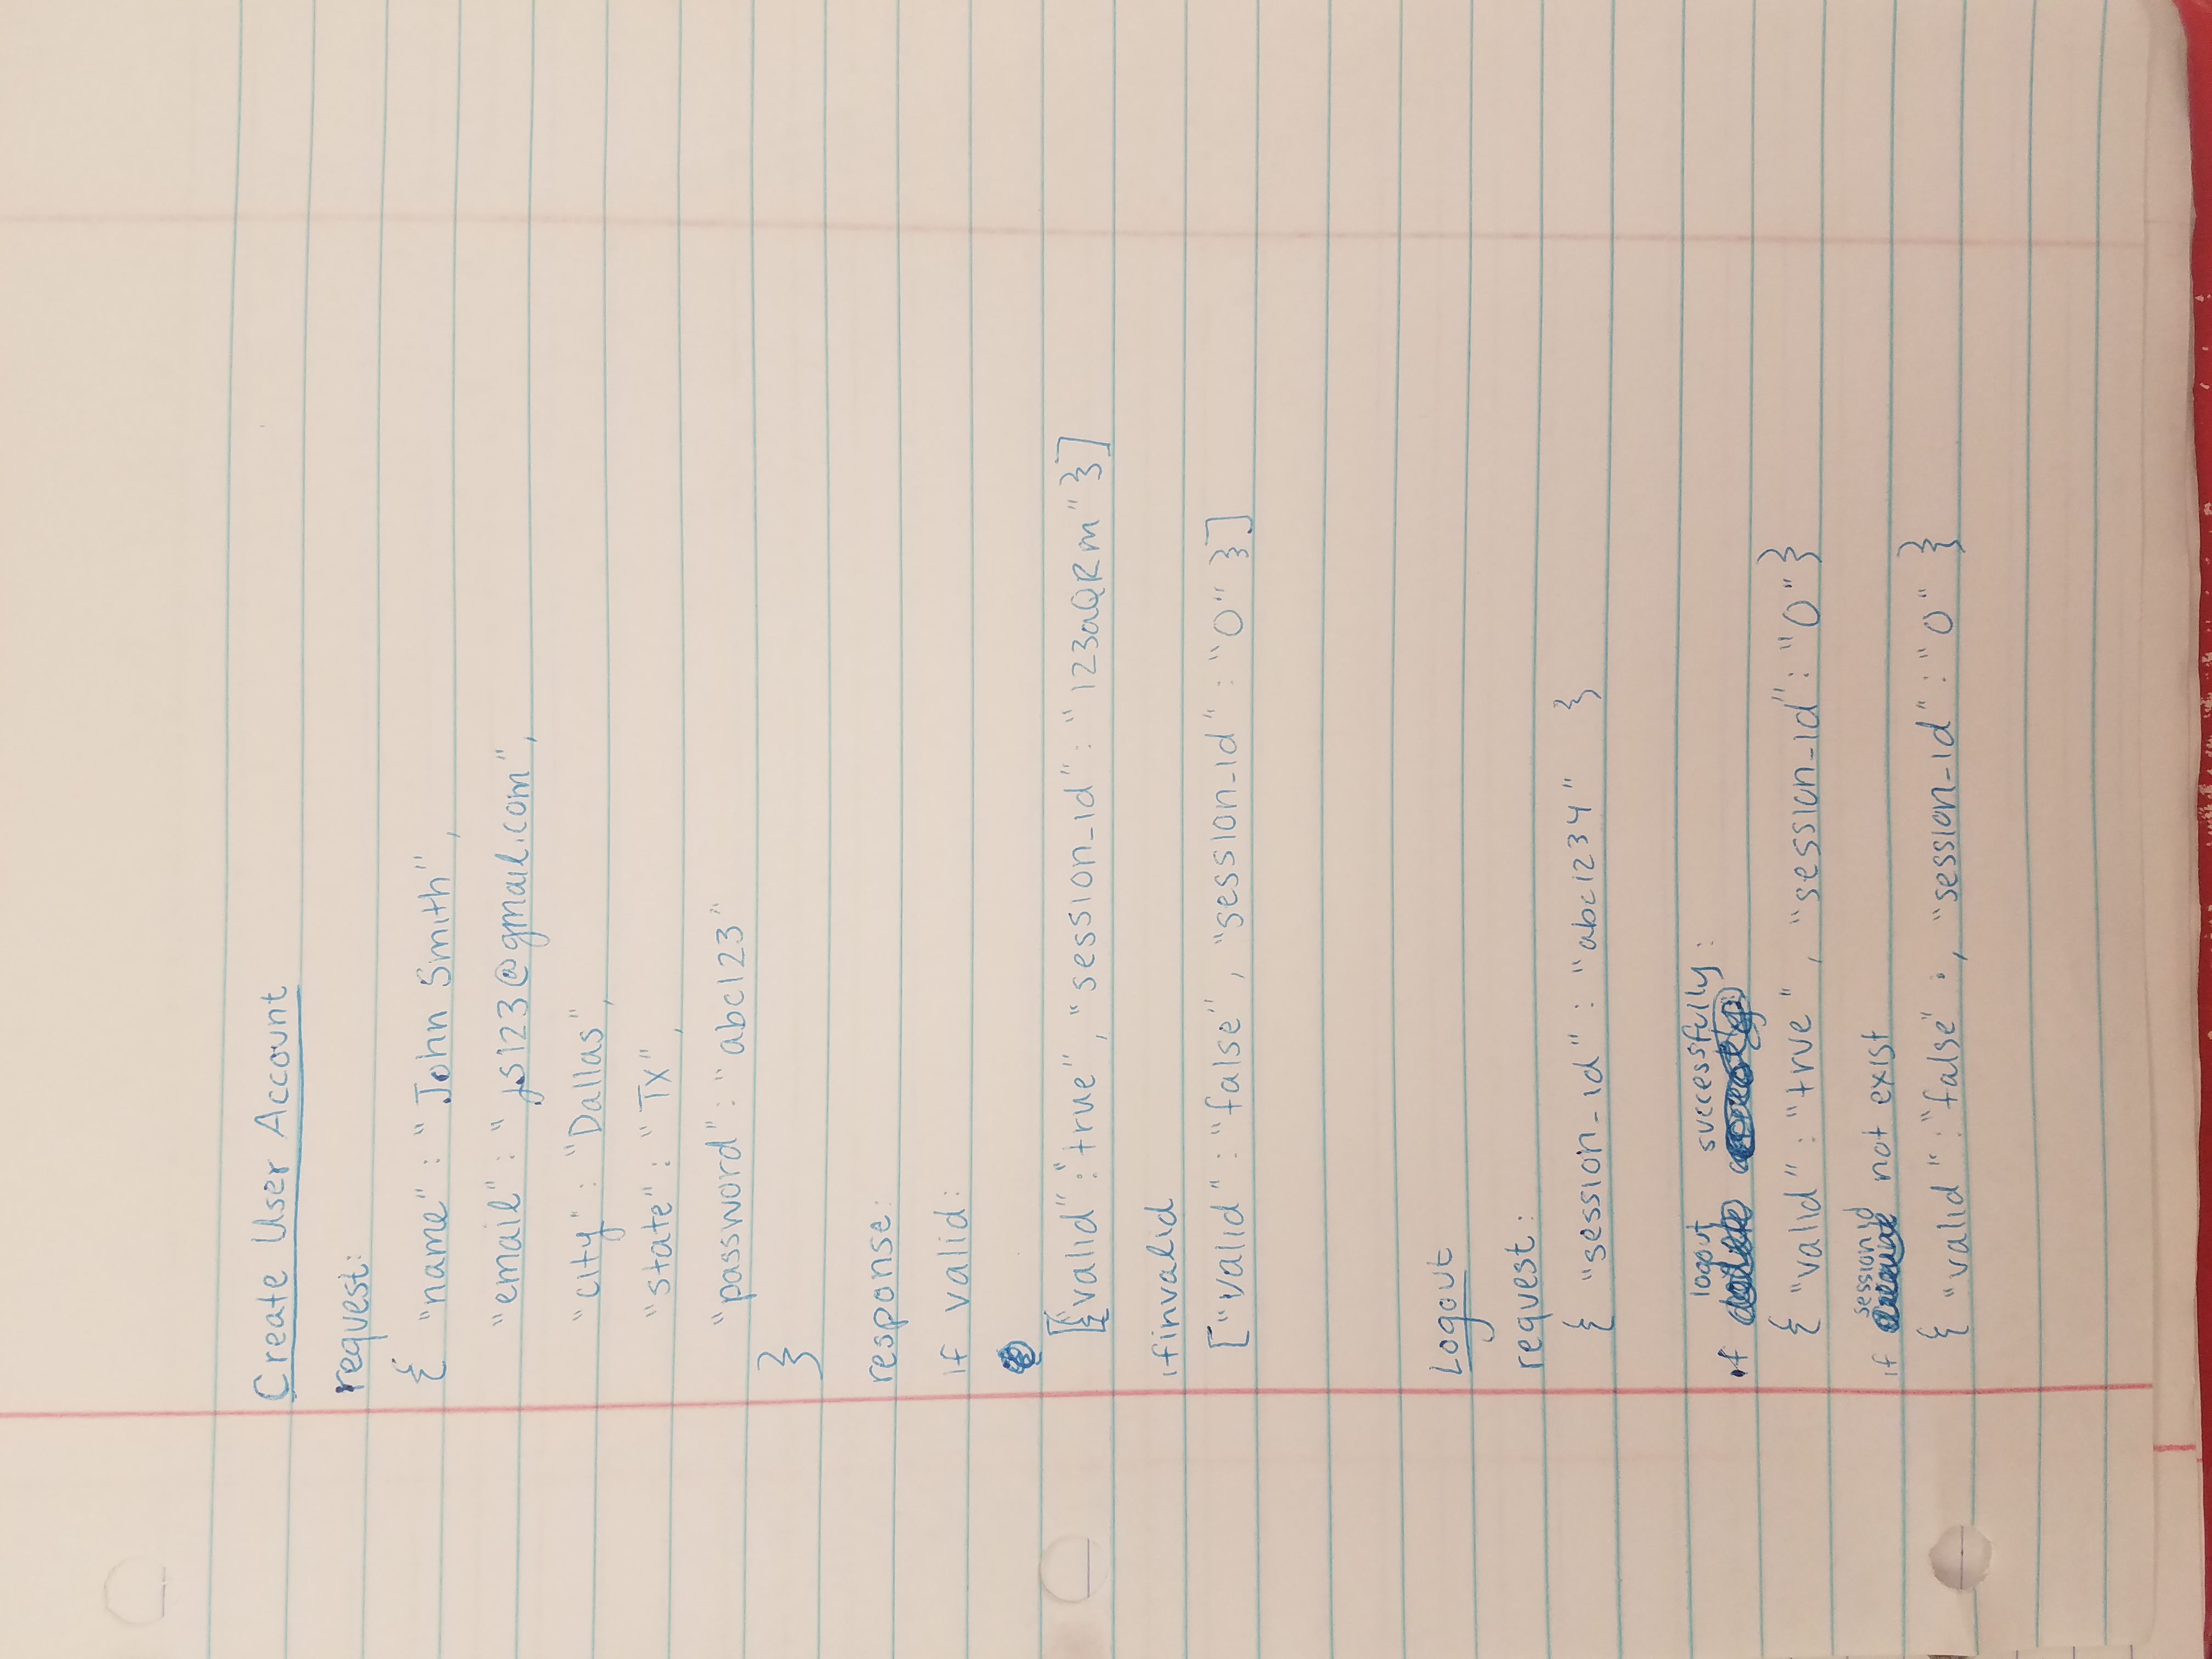 Create User Account
request:
{ "name" : "John Smith",
"email" : "js123@gmail.com",
"city" : "Dallas",
"state" : "TX",
"password" : "abc123"
}
response:
if valid:
[{"valid" : "true", "session_id" : "123aQRm" }]
if invalid
["valid" : "false", "session_id" : "0" }]
Logout
request:
{ "session_id" : "abc1234" }
logout successfully:
if
{ "valid" : "true", "session_id" : "0" }
session id
if not exist
{ "valid" : "false" , "session_id" : "0" }